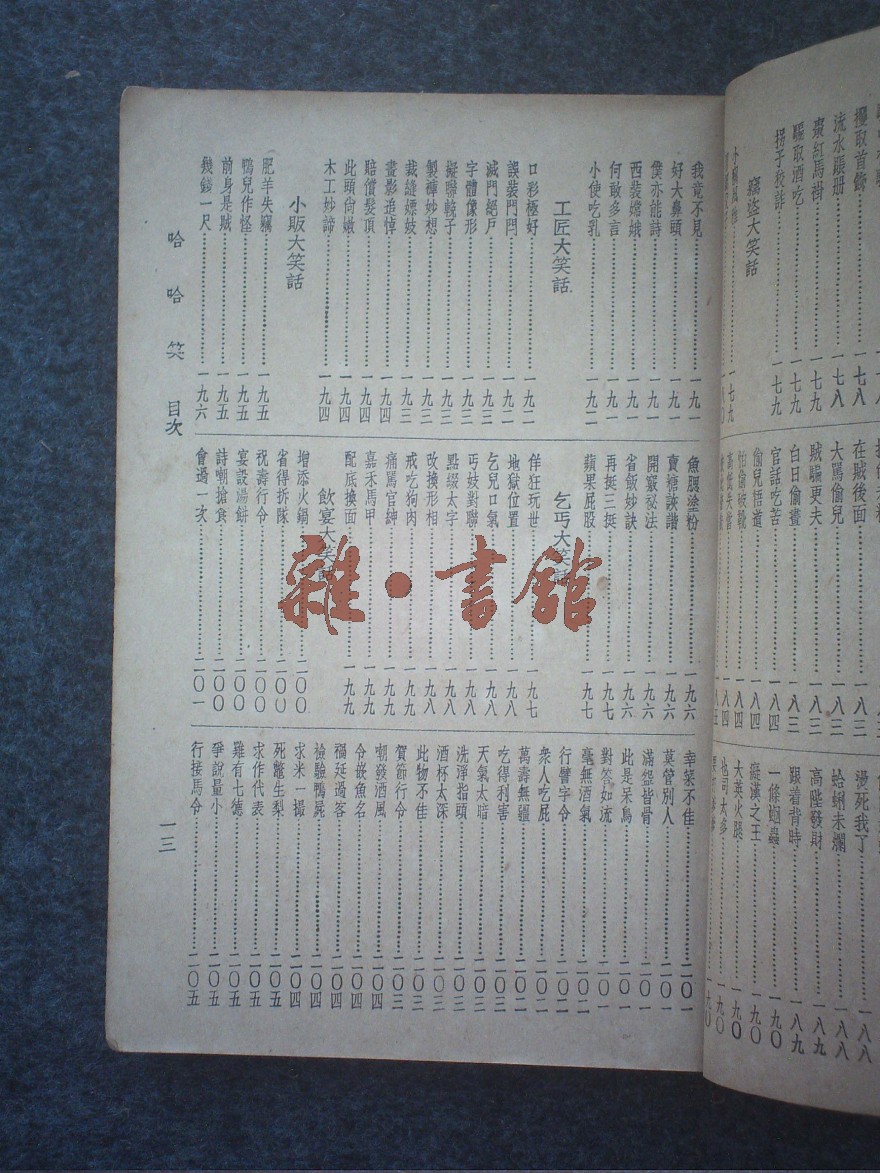 我竟不見 一九一
好大鼻頭 一九一
僕亦能詩 一九一
西裝嫦娥 一九一
何敢多言 一九一
小使吃乳 一九二
工匠大笑話
口彩極好 一九二
誤裝門閂 一九二
滅門絕戶 一九二
字體像形 一九三
擬聯輓子 一九三
製褲妙想 一九三
裁縫嫖妓 一九三
畫影追悼 一九四
賠償髮頂 一九四
此頭尙嫩 一九四
木工妙諦 一九四
小販大笑話
肥羊失竊 一九五
鴨兒作怪 一九五
前身是賊 一九五
幾錢一尺 一九六
魚胭塗粉 一九六
賣糖詼諧 一九六
開竅秘法 一九六
省飯妙訣 一九六
再挺三挺 一九七
蘋果屁股 一九七
乞丐大笑話
佯狂玩世 一九七
地獄位置 一九八
乞兒口氣 一九八
丐妓對聯 一九八
點綴太字 一九八
改換形相 一九八
戒吃狗肉 一九九
痛罵官紳 一九九
嘉禾馬甲 一九九
配底換面 一九九
飲宴大笑話
增添火鍋 二〇〇
省得拆隊 二〇〇
祝壽行令 二〇〇
宴設湯餅 二〇〇
詩嘲搶食 二〇〇
會過一次 二〇一
幸菜不佳 二〇一
莫管別人 二〇一
滿盤皆骨 二〇一
此是呆鳥 二〇一
對答如流 二〇一
毫無酒氣 二〇二
行譬字令 二〇二
衆人吃屁 二〇二
萬壽無疆 二〇二
吃得利害 二〇三
天氣太暗 二〇三
洗淨指頭 二〇三
酒杯太深 二〇三
此物不佳 二〇三
賀節行令 二〇三
嘲發酒風 二〇四
令嵌魚名 二〇四
禍延過客 二〇四
檢驗鴨屍 二〇四
求米一撮 二〇四
死鼈生梨 二〇五
求作代表 二〇五
雞有七德 二〇五
爭說量小 二〇五
行接馬令 二〇五
哈哈笑 目次
一三
攫取首飾
流水賬册
棗紅馬褂 一七九
騙取酒吃 一七九
拐子
竊盜大笑話
在賊後面
大罵偷兒
賊騙更夫 一八三
白日偷畫 一八三
官話吃苦 一八四
偷兒悟道 一八四
燙死我了 一八八
蛤蜊未爛 一八八
高陞發財 一八九
跟着背時 一八九
一條蛔蟲 一九〇
癡漢之王 一九〇
大英火腿 一九〇
雜·書館